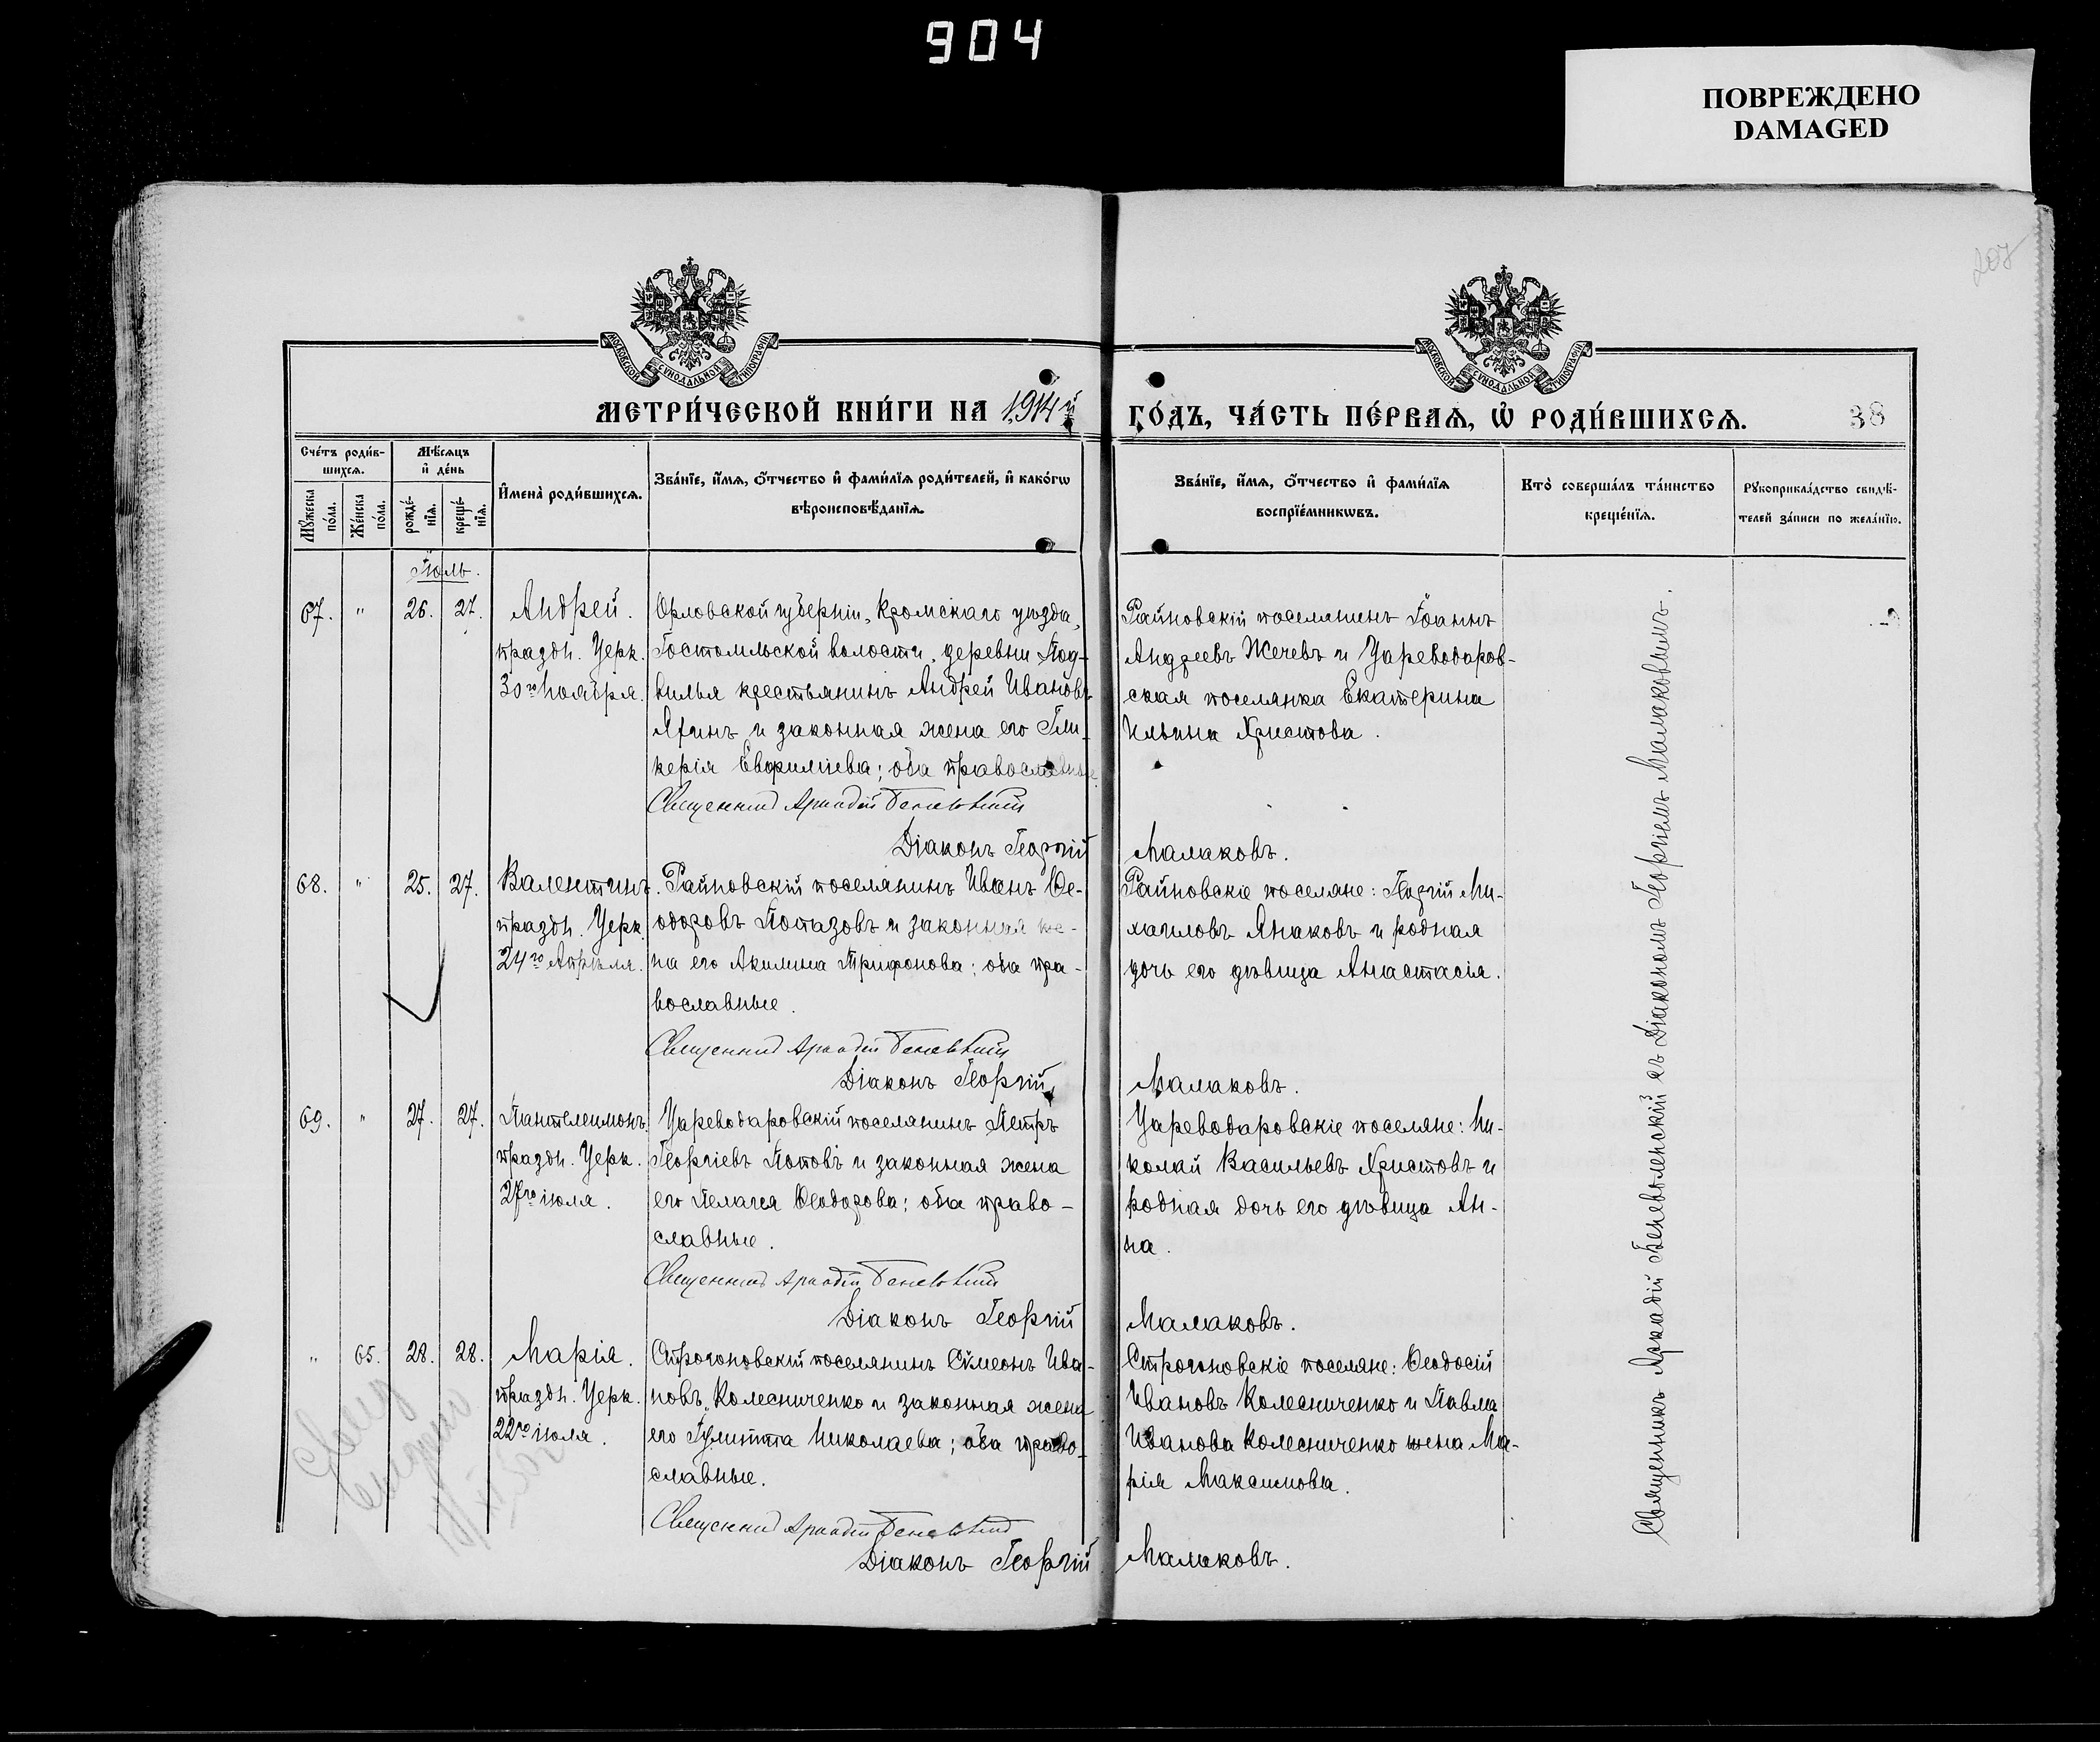 904
ПОВРЕЖДЕНО
DAMAGED
207
МОСКОВСКОЙ СѴНОДАЛЬНОЙ ТИПОГРАФІИ
МОСКОВСКОЙ СѴНОДАЛЬНОЙ ТИПОГРАФІИ
МЕТРИ́ЧЕСКОЙ КНИ́ГИ НА 1914й
ГО́ДЪ, ЧА́СТЬ ПЕ́РВАѦ, Ѡ҆ РОДИ́ВШИХСѦ.
38
Сче́тъ роди́в-
шихсѧ.
Мꙋ́жеска по́ла.
Же́нска по́ла.
Мѣ́сѧцъ
и҆ де́нь
рожде́-
нїѧ.
креще́-
нїѧ.
И҆мена̀ роди́вшихсѧ.
Зва́нїе, и҆́мѧ, ѻ҆́тчество и҆ фами́лїѧ роди́телей, и҆ како́гѡ
вѣроисповѣ́данїѧ.
Зва́нїе, и҆́мѧ, ѻ҆́тчество и҆ фами́лїѧ
воспрїе́мникѡвъ.
Кто̀ соверша́лъ та́инство
креще́нїѧ.
Рꙋкоприкла́дство свидѣ́-
телей за́писи по жела́нїю.
Іюль.
67. " 26. 27.
Андрей.
праздн. Церк.
30го Ноября.
Орловской губерніи, Кромскаго уѣзда,
Гостомльской волости, деревни Под-
вилья крестьянинъ Андрей Ивановъ
и законная жена его Гли-
керія оба православные
Священникъ Аркадій
Діаконъ Георгій Малаковъ.
Райновскій поселянинъ Іоаннъ
Андреевъ Жечевъ и Цареводаров-
ская поселянка Екатерина
Ильина Христова.
68. " 25. 27.
Валентинъ.
праздн. Церк.
24го Апрѣля.
Райновскій поселянинъ Иванъ Ѳе-
одоровъ и законная же-
на его Акилина Трифонова; оба пра-
вославные.
Священникъ Аркадій
Діаконъ Георгій Малаковъ.
Райновскіе поселяне: Георгій Ми-
хаиловъ Янаковъ и родная
дочь его дѣвица Анастасія.
69. " 27. 27.
Пантелеимонъ.
праздн. Церк.
27го іюля.
Цареводаровскій поселянинъ Петръ
Георгіевъ Поповъ и законная жена
его Пелагея Ѳеодорова; оба право-
славные.
Священникъ Аркадій
Діаконъ Георгій Малаковъ.
Цареводаровскіе поселяне: Ни-
колай Васильевъ Христовъ и
родная дочь его дѣвица Ан-
на.
" 65. 28. 28.
Марія.
праздн. Церк.
22го іюля.
Строгоновскій поселянинъ Симеонъ Ива-
новъ Колесниченко и законная жена
его Іулитта Николаева; оба право-
славные.
Священникъ Аркадій
Діаконъ Георгій Малаковъ.
Строгоновскіе поселяне: Ѳеодосій
Ивановъ Колесниченко и Павла
Иванова Колесниченко жена Ма-
рія Максимова.
Священникъ Аркадій Беневоленскій съ Діакономъ Георгіемъ Малаковымъ.